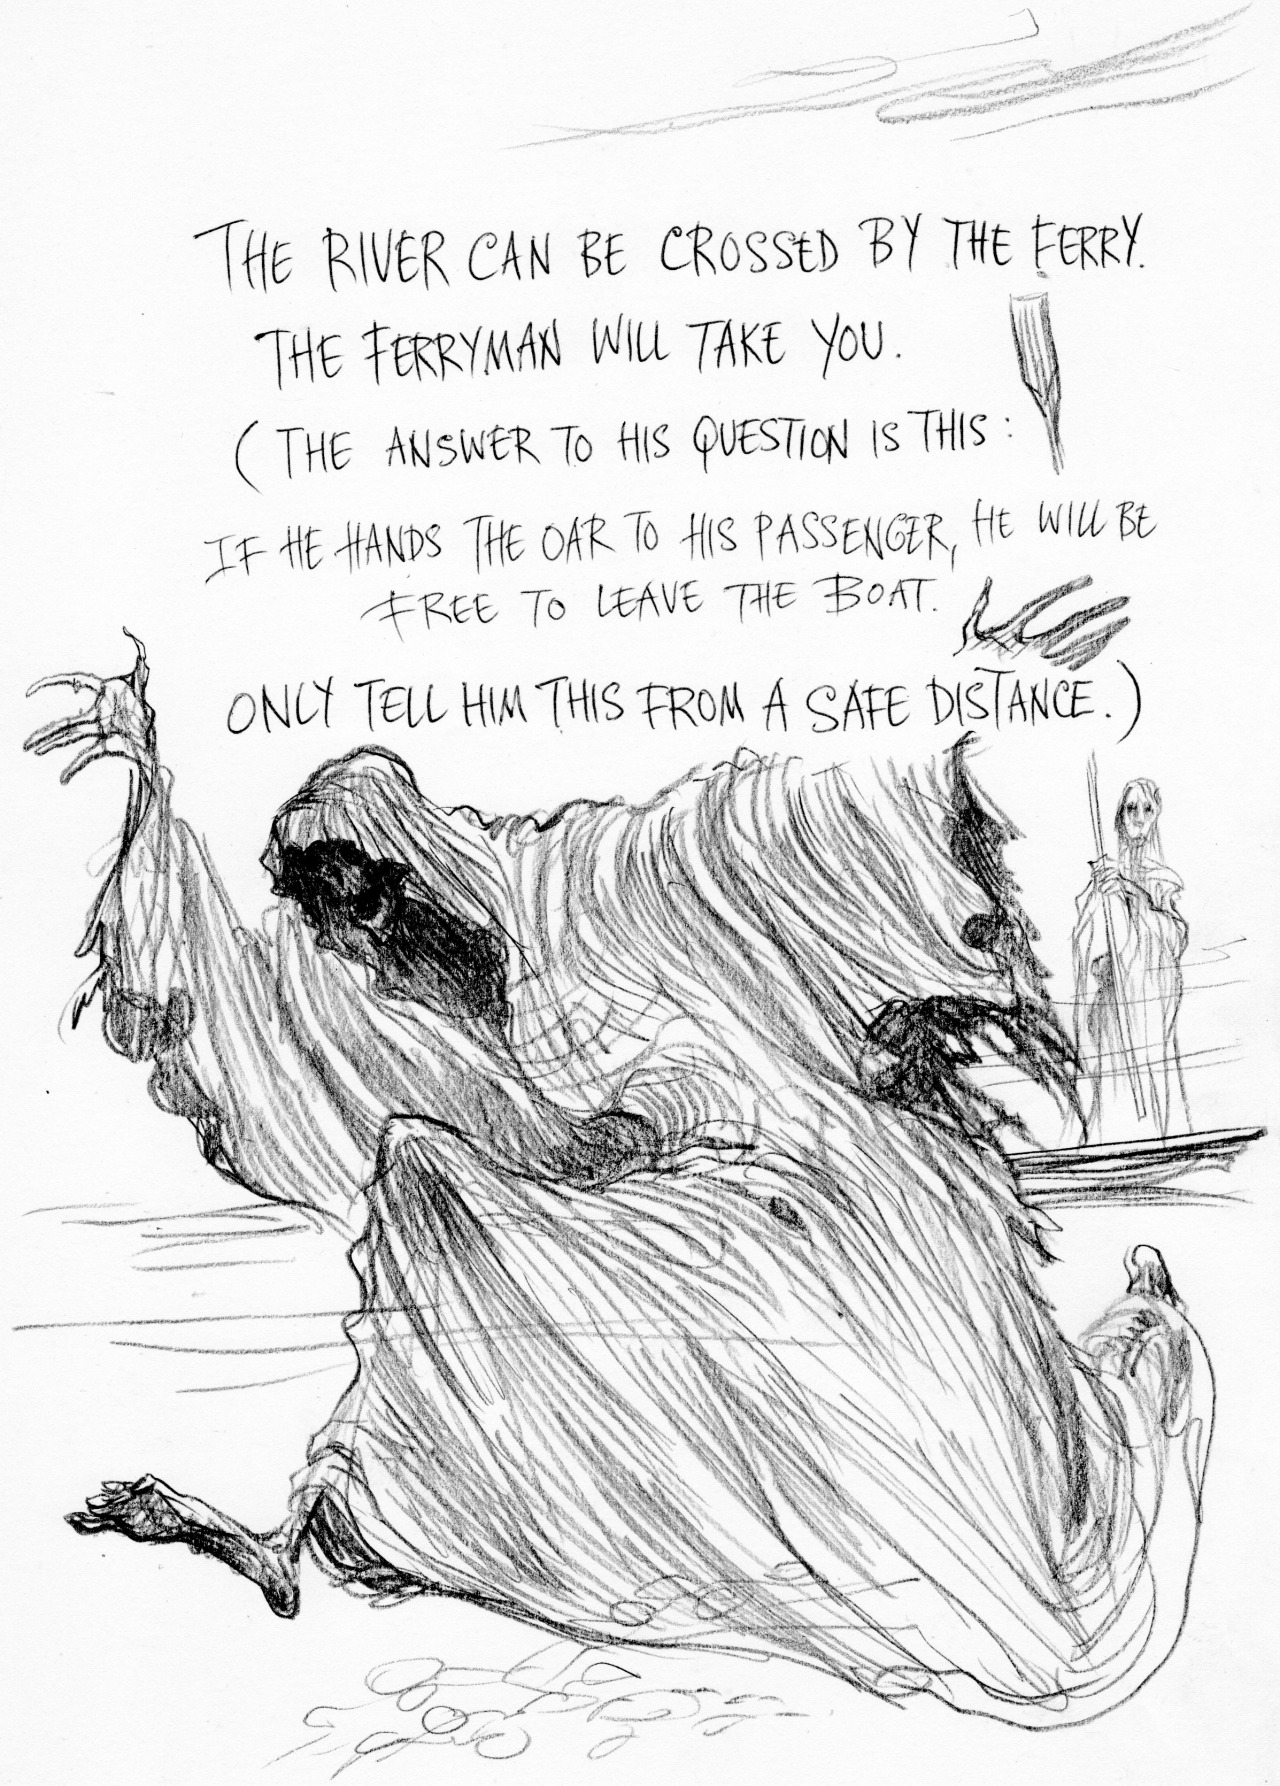 THE RIVER CAN BE CROSSED BY THE FERRY.
THE FERRYMAN WILL TAKE YOU.
(THE ANSWER TO HIS QUESTION IS THIS:
IF HE HANDS THE OAR TO HIS PASSENGER, HE WILL BE
FREE TO LEAVE THE BOAT.
ONLY TELL HIM THIS FROM A SAFE DISTANCE.)